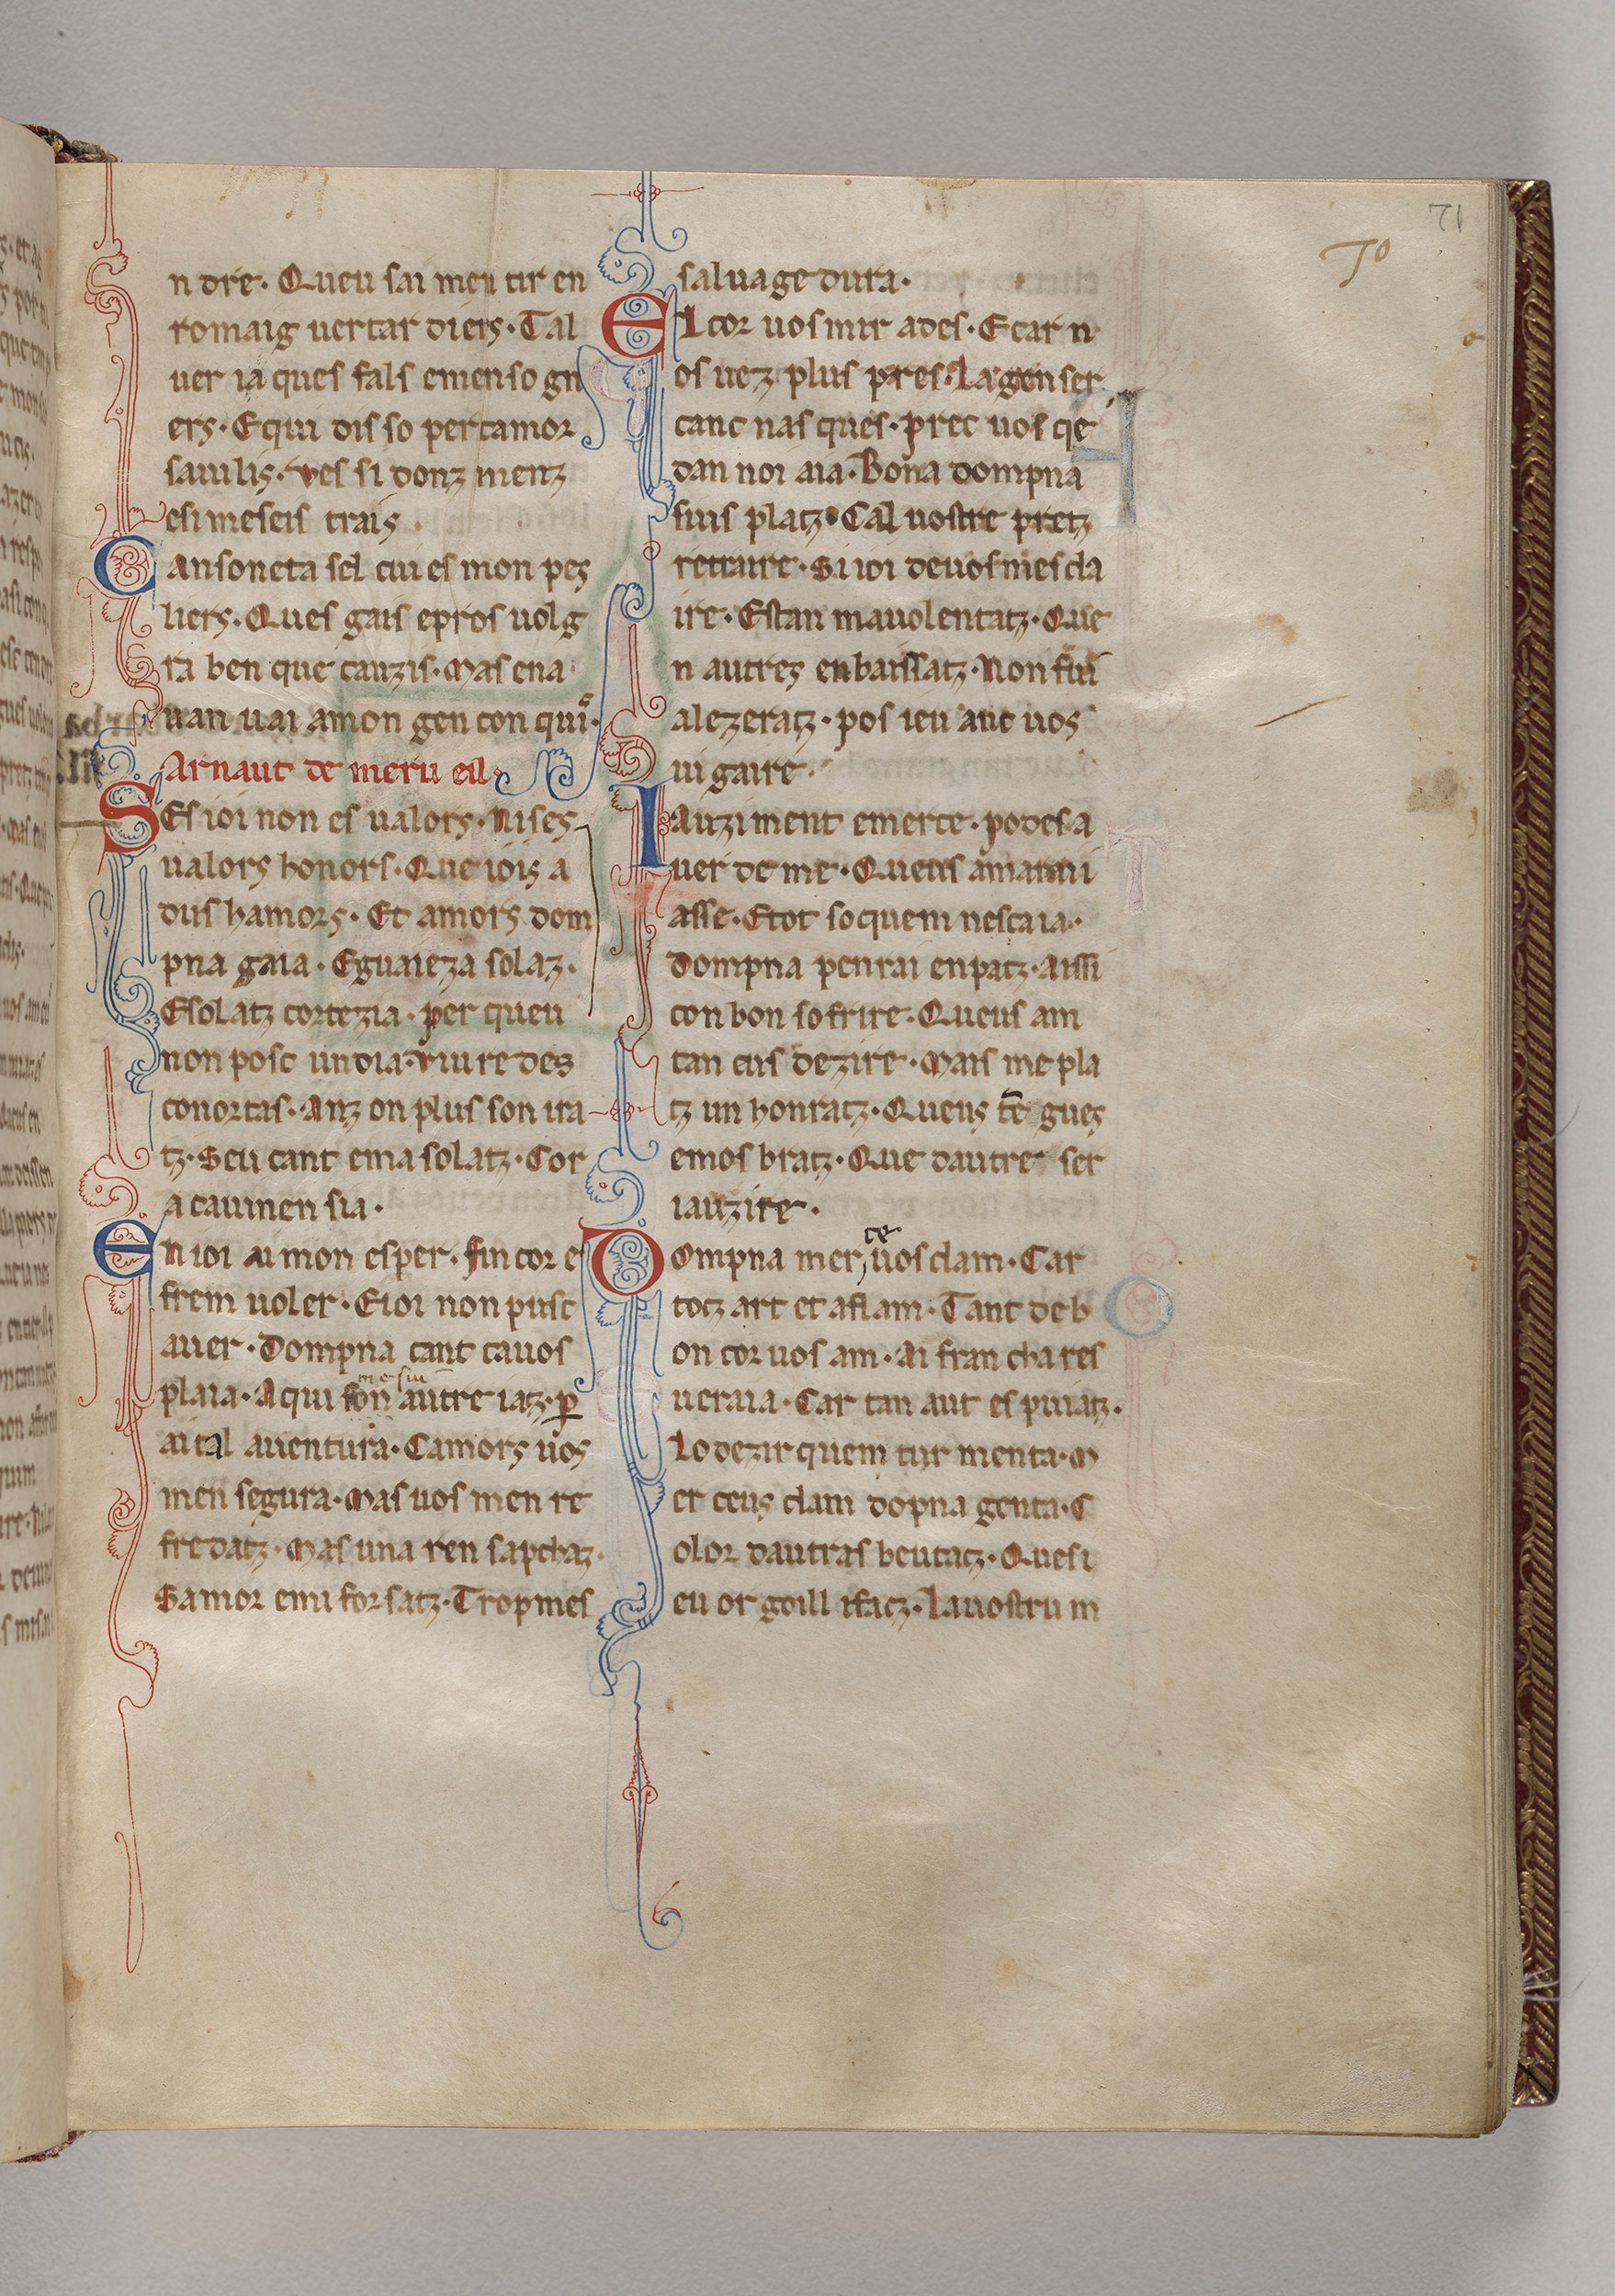 71
70
n dre. Queu sai men tir en
romaig uertar diers. Tal
uer ia ques fals emenso gn
ers. Equi dis so pertamor
sauulis. ves si donz menz
esimeseis trais
Cansoneta sel cui es mon pes
liers. Ques gais epros uolg
ra ben que cauzis. Mas ena
uan uai amon gen con qui.
Arnaut de meru eil.
SEs ioi non es ualors. Ni ses
ualors honors. Que iois a
dus hamors. Et amors dom
pna gaia. Eguaieza solaz.
Esolatz cortezia. per queu
non posc un dia. viu re des
conortas. Anz on plus son ira
tz. Seu cant ema solatz. Cor
a cauinen sia.
En ioi ai mon esper. fin cor e
frem uoler. E ioi non pusc
auer. Dompna tant cauos
plaia. Aqui son autre iatz. p
me siu
ai tal auentura. Camors uos
men segura. Mas uos men re
fredatz. Mas una ren sapchaz.
Samor emi for satz. Trop mes
saluage dura.
El cor uos mir ades. E car n
os uez plus pres. La gen ser
canc nas ques. prec uos qe
dan noi aia. Bona dompna
suis platz. Cal uostre pretz
retraire. Si ioi deuos mes cla
ire. Estan mauolentatz. Que
n autres enbaissatz. Non fui
alezeratz. pos ieu anc uos
ui gaire.
Iauzi ment emerce. podes a
uer de me. Queus am anui
asse. E tot so quem nescaia.
Dompna penrai enpatz. Aissi
con bon sofrire. Queus am
tan eus dezire. Mais me pla
tz un honratz. Queus te gues
emos bratz. Que dautre ser
iauzire.
Dompna mer uos clam. Car
ce
totz art et aflam. Tant de b
on cor uos am. Ai fran cha res
ueraia. Car tan aut es puiatz.
Lo dezir quem tur menta. M
er ceus clam dopna genta. C
olor dautras beutatz. Quesi
eu or goill ifatz. La uostru m